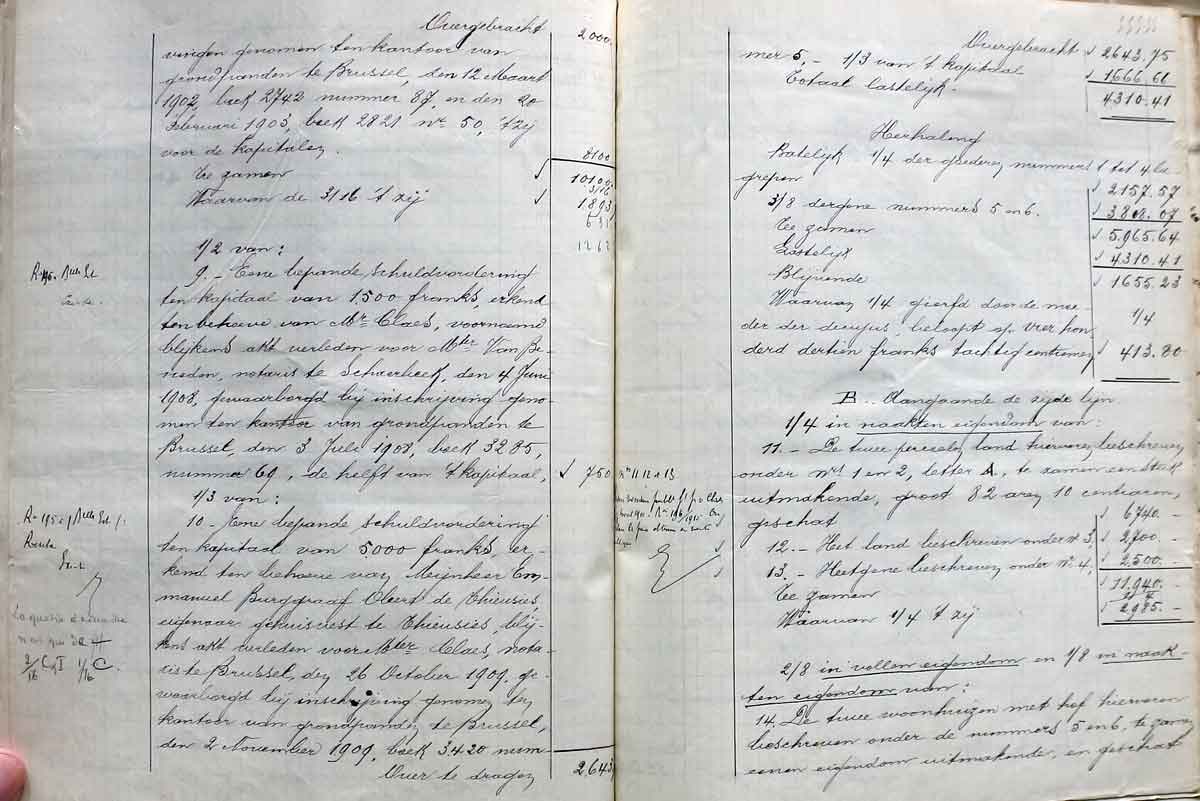 Overgebracht 2000.
vingen genomen ten kantoor van
grondpanden te Brussel, den 12 Maart
1902, boek 2742 nummer 87, en den 20
Februari 1903, boek 2821 nr 50, 't zij
voor de kapitalen. 8100
Te zamen 10100
3/16
Waarvan de 3/16 't zij 1893
631
1262
1/2 van:
9.- Eene bepande schuldvordering
ten kapitaal van 1500 franks, erkend
ten behoeve van Mr Claes, voornoemd
blijkens akt verleden voor Mter Van Be-
neden, notaris te Schaerbeek, den 4 Juni
1908, gewaarborgd bij inschrijving geno-
men ten kantoor van grondpanden te
Brussel, den 3 Juli 1908, boek 3285,
nummer 69, de helft van 't kapitaal, 750
1/3 van:
10.- Eene bepande schuldvordering
ten kapitaal van 5000 franks, er-
kend ten behoeve van Mijnheer Em-
manuel Burggraaf Obert de Thieusies,
eigenaar gehuisvest te Thieusies, blij-
kens akt verleden voor Mter Claes, nota-
ris te Brussel, den 26 October 1909, ge-
waarborgd bij inschrijving genomen ten
kantoor van grondpanden te Brussel,
den 2 November 1909, boek 3420 num-
Over te dragen 2643
Overgebracht 2643.75
mer 5, - 1/3 van 't kapitaal 1666.66
Totaal lastelijk. 4310.41
Herhaling
Batelijk 1/4 der goederen nummers 1 tot 4 be-
grepen 2157.57
3/8 dergene nummers 5 en 6. 3808.07
Te zamen 5965.64
Lastelijk 4310.41
Blijvende 1655.23
Waarvan 1/4 geerfd door de moe- 1/4
der der decujus, beloopt op vier hon
derd dertien franks tachtig centiemen 413.80
B.. Aangaande de zijde lijn
1/4 in naakten eigendom van:
11.- De twee perceelen land hiervoren beschreven
onder nrs 1 en 2, letter A, te zamen een stuk
uitmakende, groot 82 aren 10 centiaren,
geschat 6740.-
12.- Het land beschreven onder nr 3, 2700.-
13.- Hetgene beschreven onder nr 4, 2500.-
Te zamen 11940.-
Waarvan 1/4 't zij 2985.-
2/8 in vollen eigendom en 1/8 in naak-
ten eigendom van:
14. De twee woonhuizen met hof hiervoren
beschreven onder de nummers 5 en 6, te zamen
eenen eigendom uitmakende, en geschat
nos 11 12 & 13